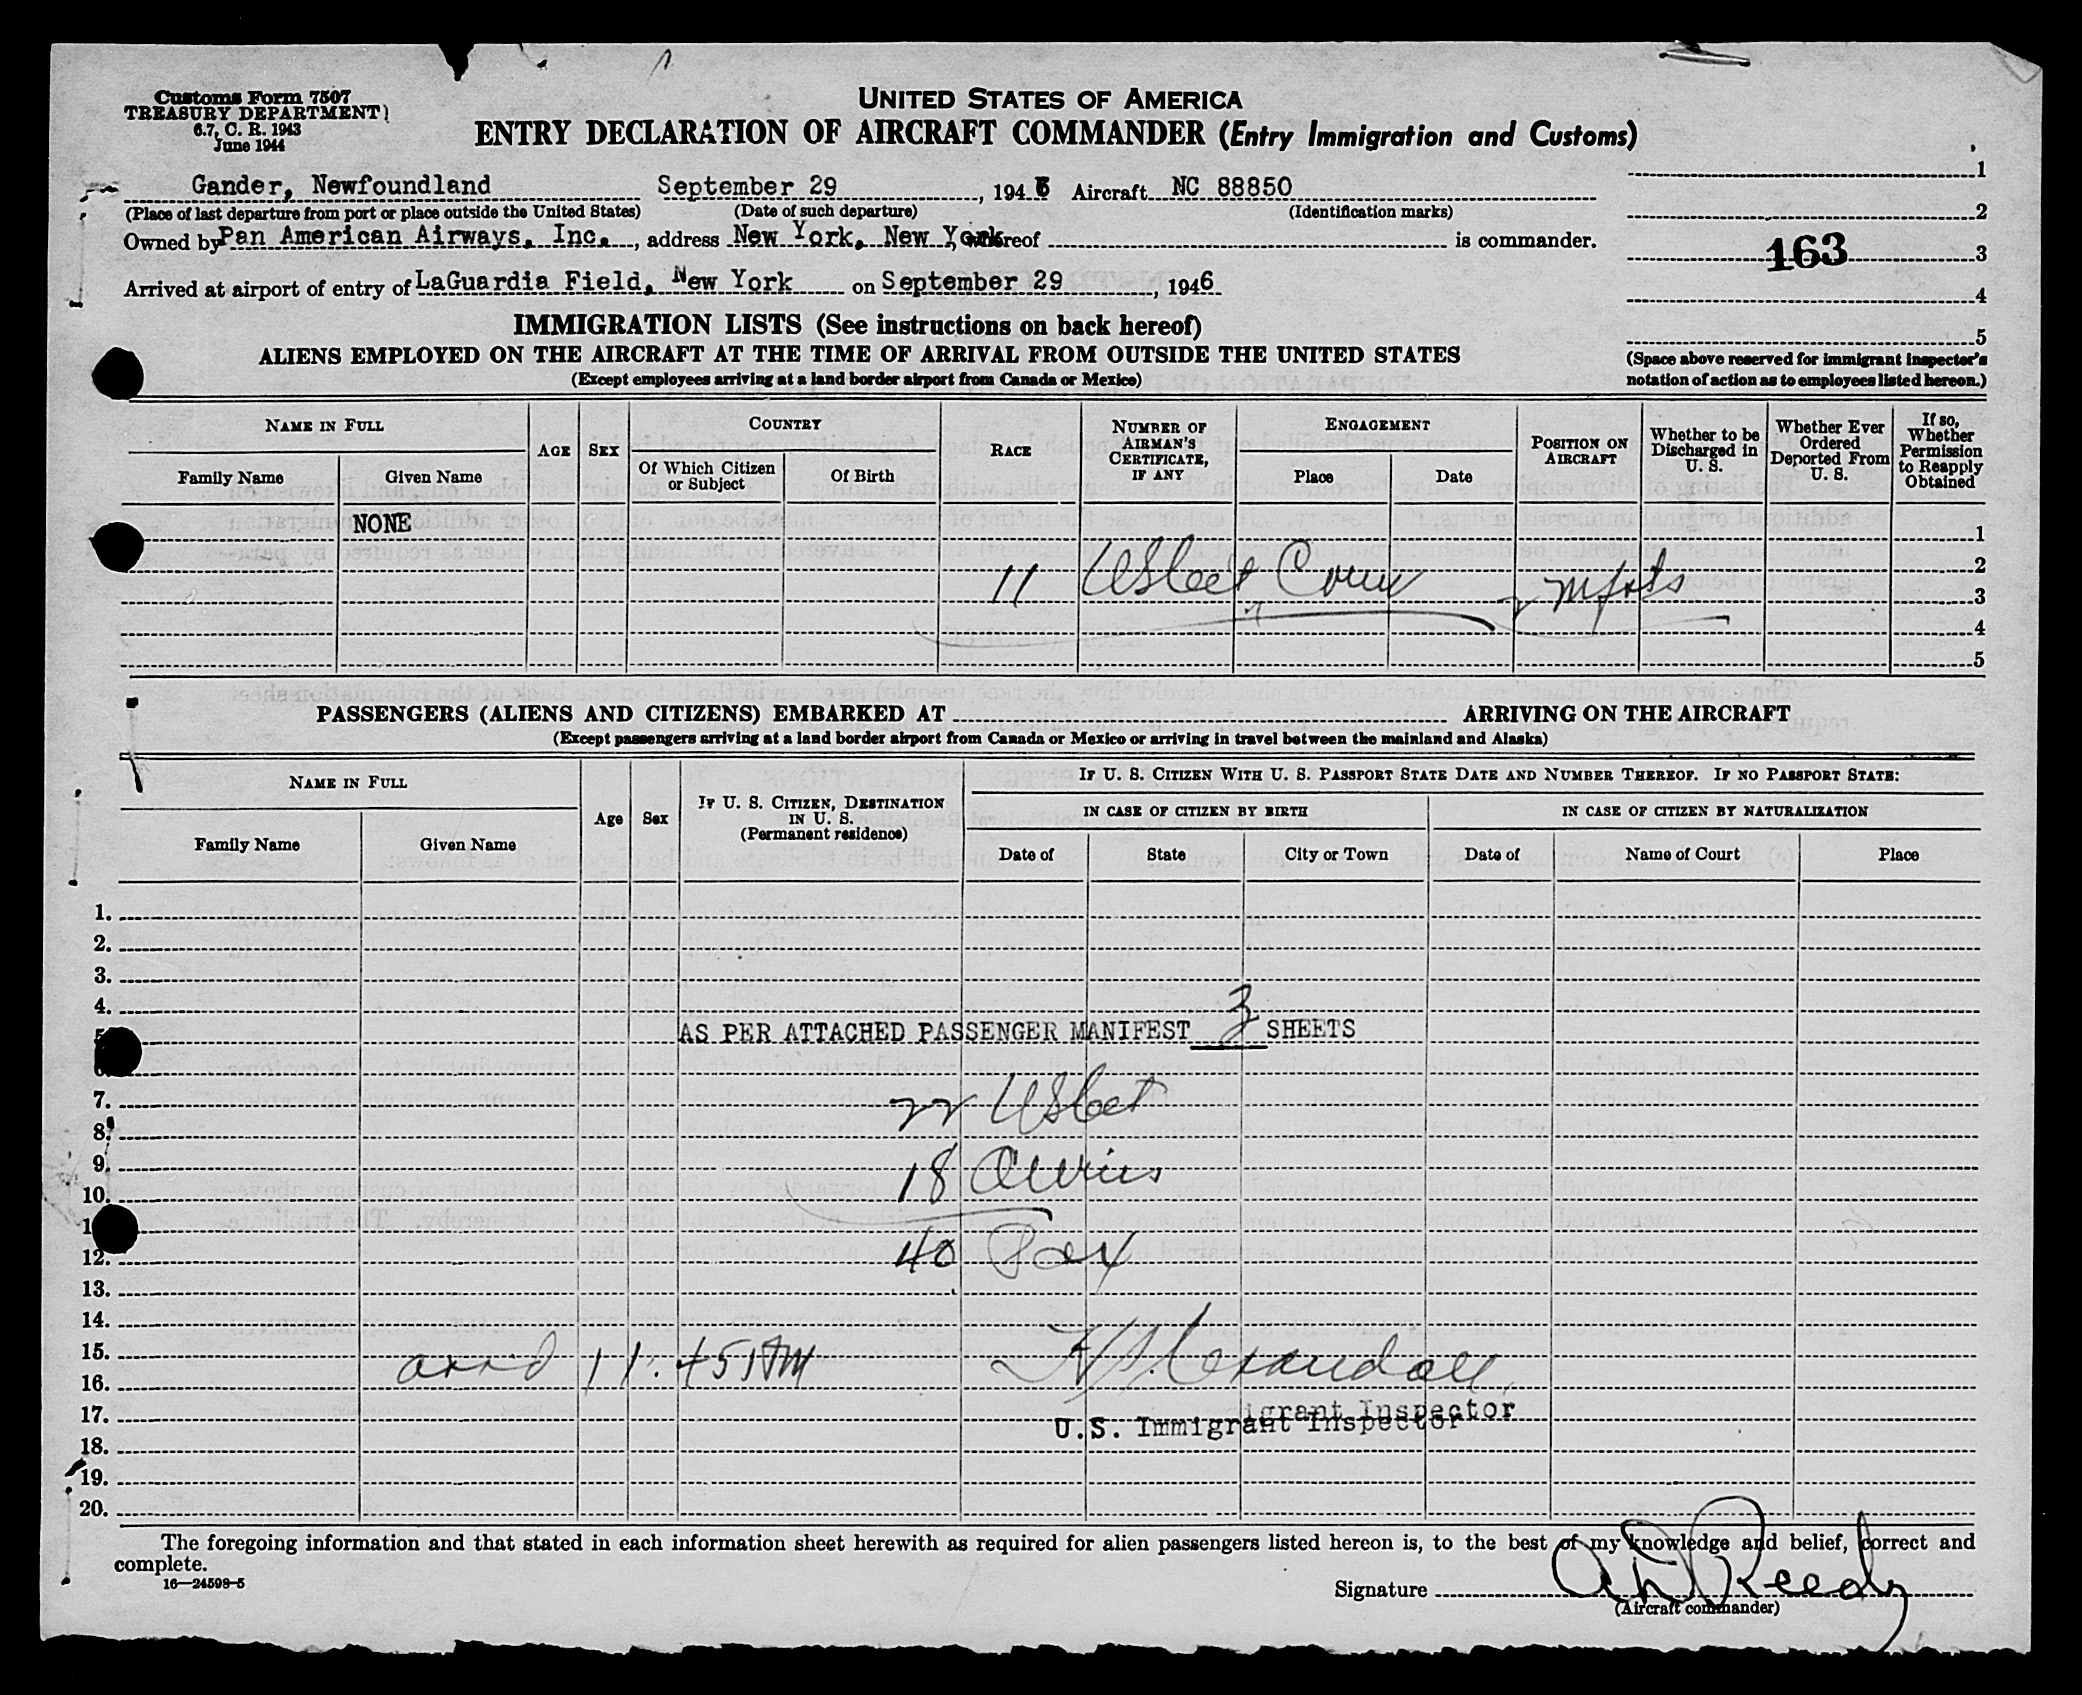 Customs Form 7507
TREASURY DEPARTMENT)
6.7, C. R. 1943
June 1944
UNITED STATES OF AMERICA
ENTRY DECLARATION OF AIRCRAFT COMMANDER (Entry Immigration and Customs)
Gander, Newfoundland September 29, 1946 Aircraft NC 88850
(Place of last departure from port or place outside the United States) (Date of such departure) (Identification marks)
Owned by Pan American Airways, Inc., address New York, New York, whereof is commander.
Arrived at airport of entry of LaGuardia Field, New York on September 29, 1946
1
2
163 3
4
5
(Space above reserved for immigrant inspector's
notation of action as to employees listed hereon.)
IMMIGRATION LISTS (See instructions on back hereof)
ALIENS EMPLOYED ON THE AIRCRAFT AT THE TIME OF ARRIVAL FROM OUTSIDE THE UNITED STATES
(Except employees arriving at a land border airport from Canada or Mexico)
NAME IN FULL
Family Name Given Name
AGE SEX
COUNTRY
Of Which Citizen or Subject
Of Birth
RACE
NUMBER OF AIRMAN'S CERTIFICATE, IF ANY
ENGAGEMENT
Place Date
POSITION ON AIRCRAFT
Whether to be Discharged in U. S.
Whether Ever Ordered Deported From U. S.
If so, Whether Permission to Reapply Obtained
NONE 1
2
11 3
4
5
PASSENGERS (ALIENS AND CITIZENS) EMBARKED AT ARRIVING ON THE AIRCRAFT
(Except passengers arriving at a land border airport from Canada or Mexico or arriving in travel between the mainland and Alaska)
NAME IN FULL
Family Name Given Name
Age Sex
IF U. S. CITIZEN, DESTINATION IN U. S. (Permanent residence)
IF U. S. CITIZEN WITH U. S. PASSPORT STATE DATE AND NUMBER THEREOF. IF NO PASSPORT STATE:
IN CASE OF CITIZEN BY BIRTH IN CASE OF CITIZEN BY NATURALIZATION
Date of State City or Town Date of Name of Court Place
1.
2.
3.
4.
AS PER ATTACHED PASSENGER MANIFEST 3 SHEETS
7. 22
8.
9. 18
10.
12. 40 Pax
13.
14.
15. arr'd 11:45 AM
16.
17. U.S. Immigrant Inspector
18.
19.
20.
The foregoing information and that stated in each information sheet herewith as required for alien passengers listed hereon is, to the best of my knowledge and belief, correct and
complete.
16—24598-5
Signature
(Aircraft commander)